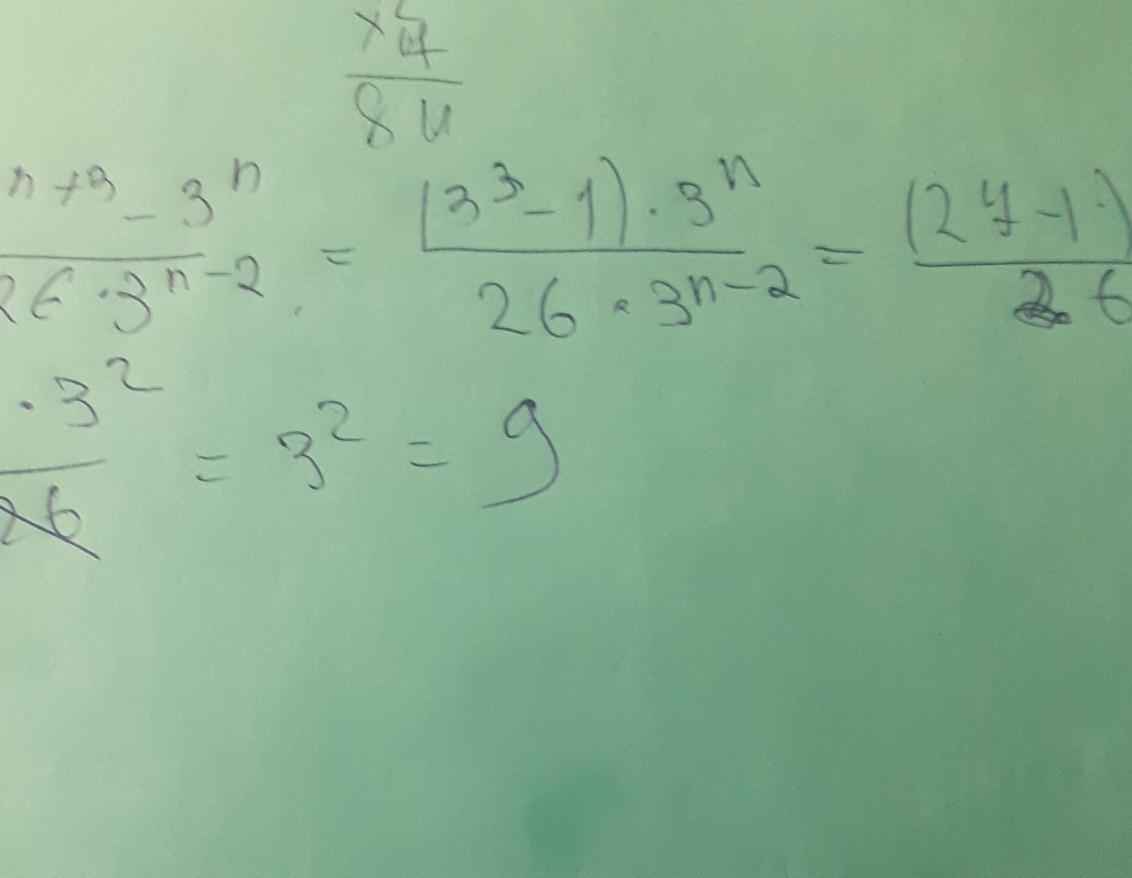 ×4
84
n+3 - 3^n / 26 · 3^n-2 = (3^3 - 1) · 3^n / 26 · 3^n-2 = (27 - 1) / 26
· 3^2 / 26 = 3^2 = 9